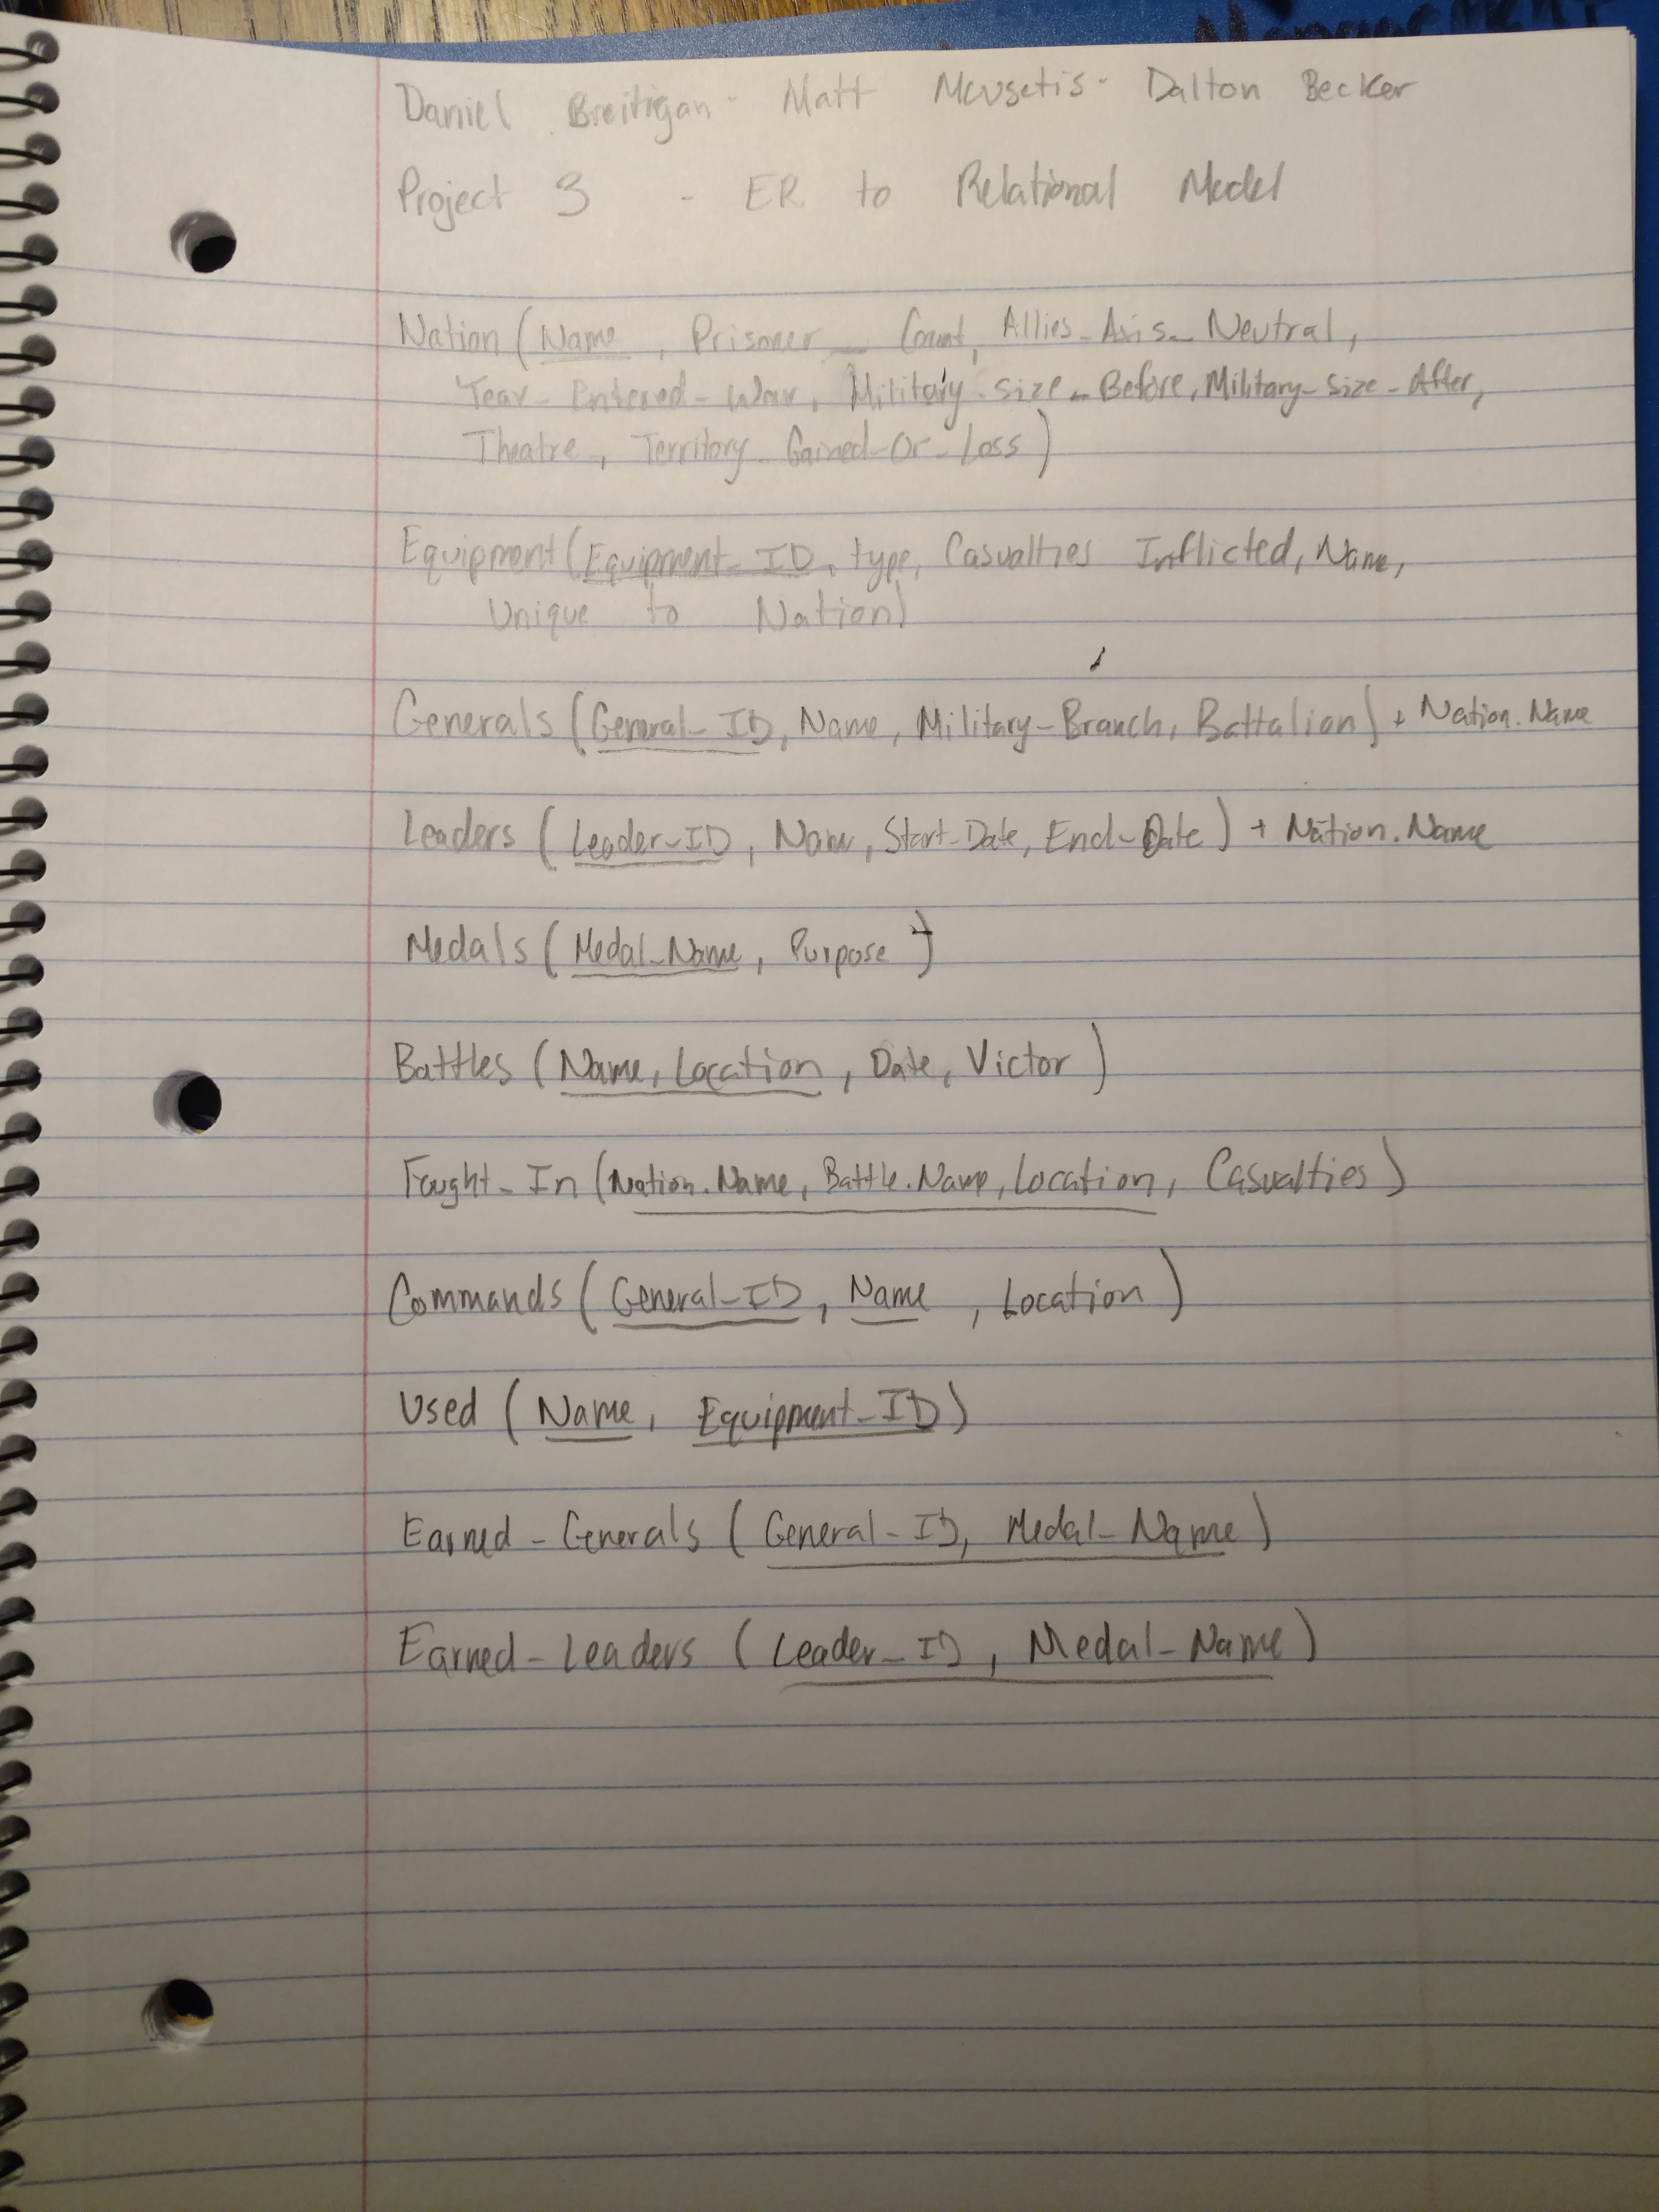 Management
Daniel Breitigan - Matt Mousetis - Dalton Becker
Project 3 - ER to Relational Model
Nation (Name, Prisoner_Count, Allies_Axis_Neutral,
Year_Entered_War, Military_Size_Before, Military_Size_After,
Theatre, Territory_Gained_Or_Loss)
Equipment (Equipment_ID, type, Casualties Inflicted, Name,
Unique to Nation)
Generals (General_ID, Name, Military_Branch, Battalion) + Nation.Name
Leaders (Leader_ID, Name, Start_Date, End_Date) + Nation.Name
Medals (Medal_Name, Purpose)
Battles (Name, Location, Date, Victor)
Fought_In (Nation.Name, Battle.Name, Location, Casualties)
Commands (General_ID, Name, Location)
Used (Name, Equipment_ID)
Earned_Generals (General_ID, Medal_Name)
Earned_Leaders (Leader_ID, Medal_Name)